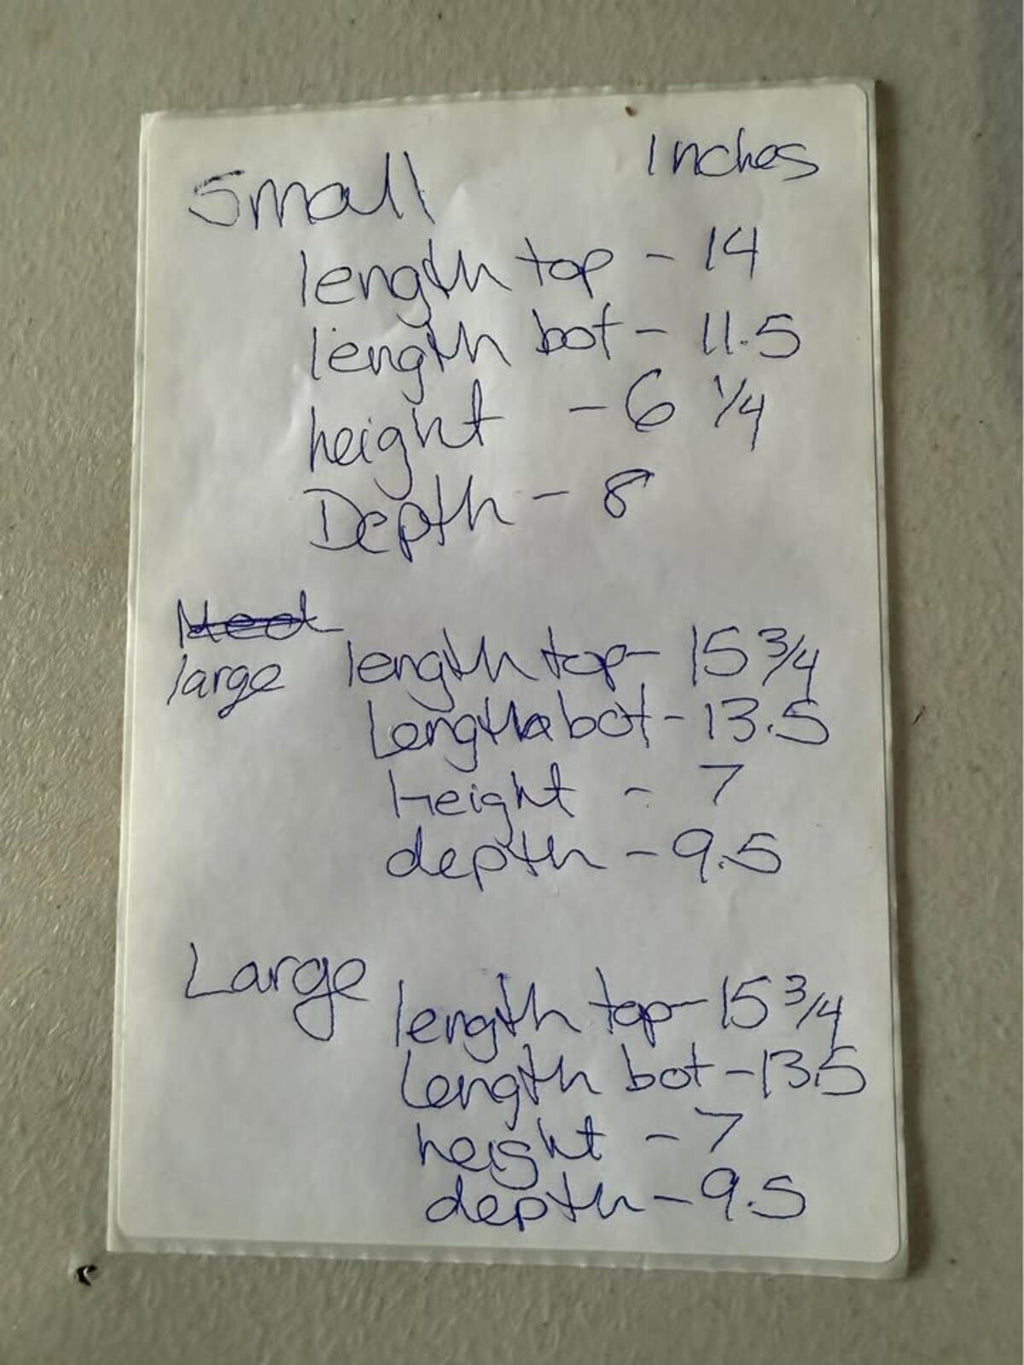 Inches
Small
length top - 14
length bot - 11.5
height - 6 1/4
Depth - 8
Med
large length top - 15 3/4
Length bot - 13.5
Height - 7
depth - 9.5
Large
length top - 15 3/4
Length bot - 13.5
height - 7
depth - 9.5